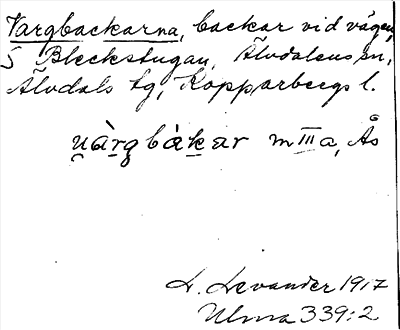 Vargbackarna, backar vid vägen,
S Bleckstugan, Älvdalens sn,
Älvdals tg, Kopparbergs l.
u̯àrgbàkar m III a, Ås
L. Levander 1917
Ulma 339:2